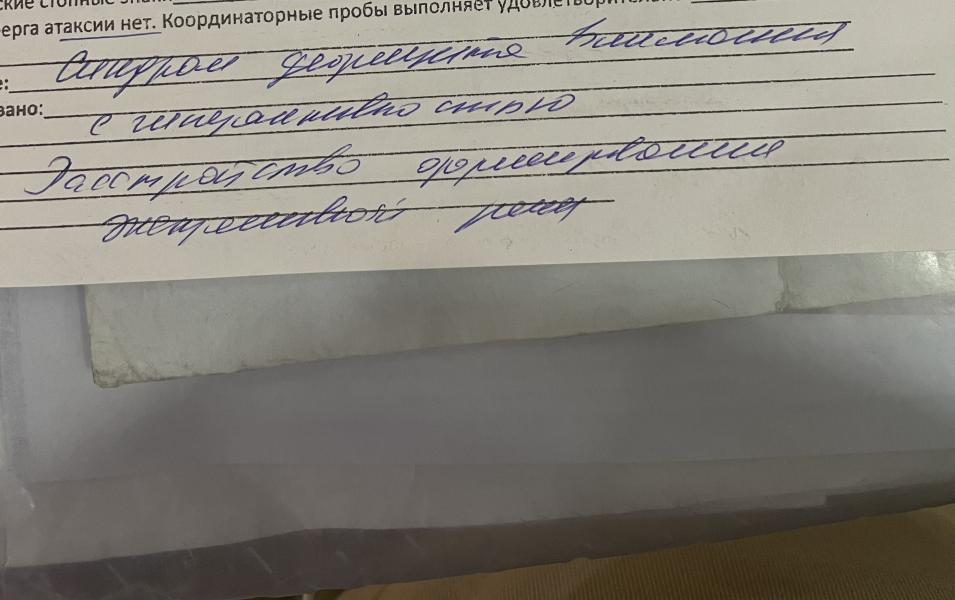 ские стопные знаки
ерга атаксии нет. Координаторные пробы выполняет удовлетворительно
е: Синдром дефицита внимания
вано: с гиперактивностью
Расстройство формирования
экспрессивной речи